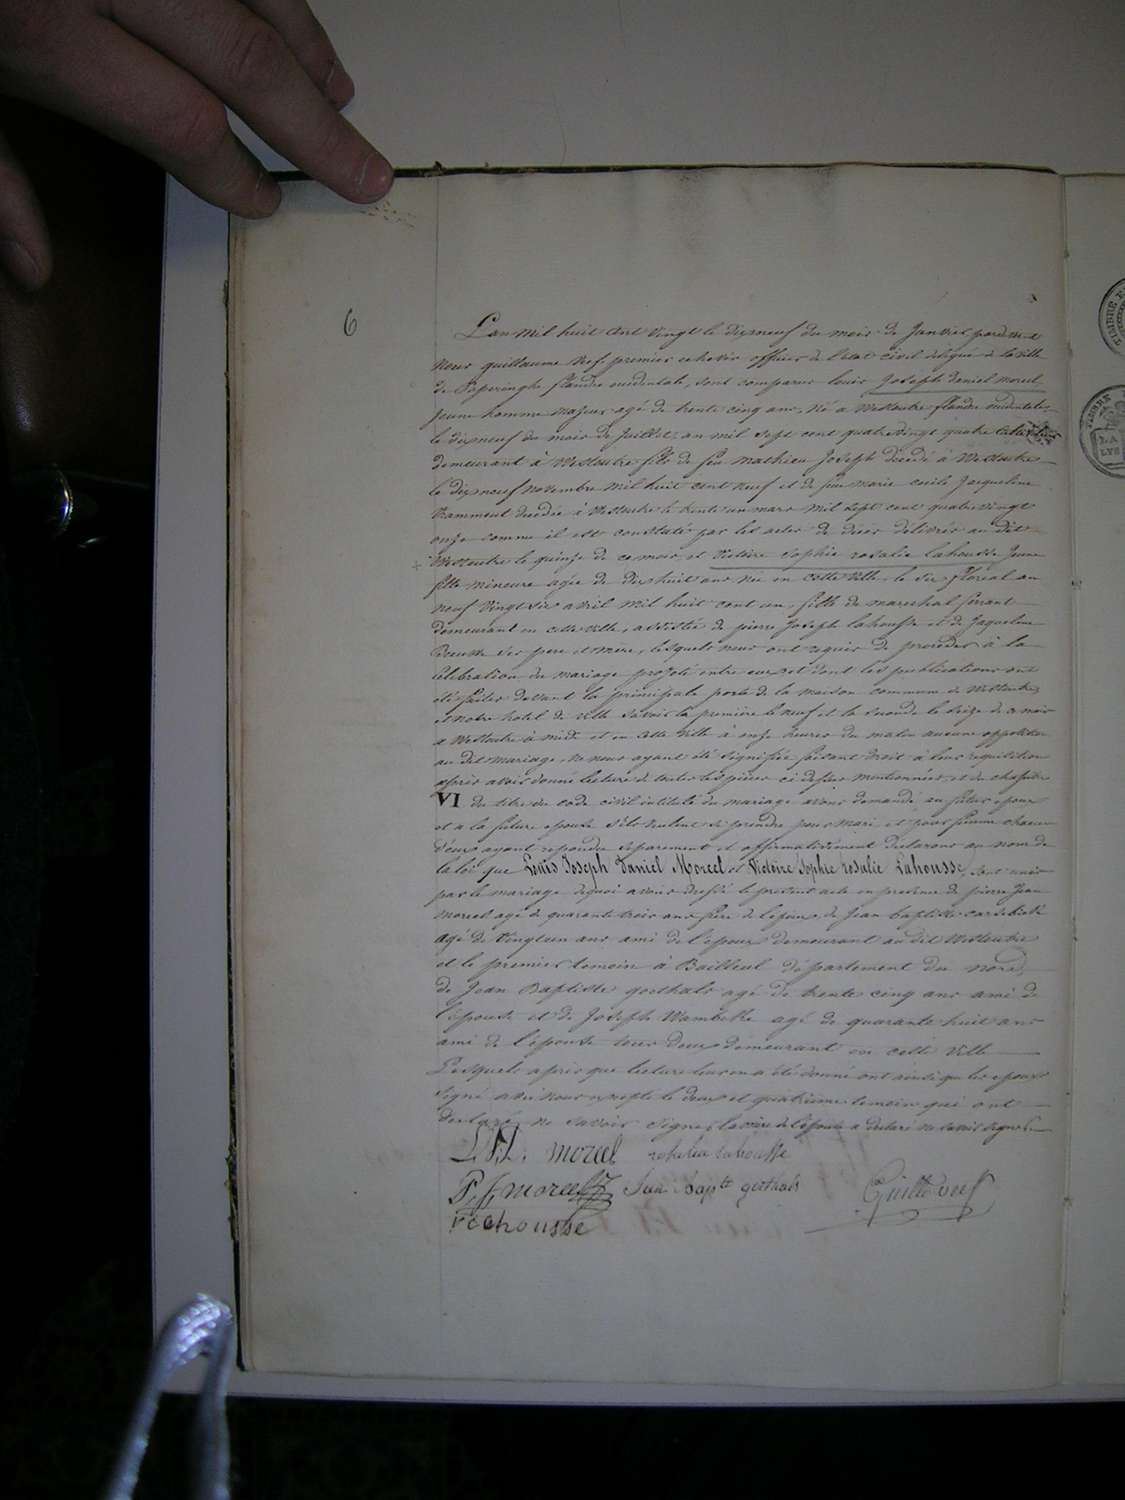 6
L'an mil huit cent vingt le dixneuf du mois de Janvier pardevant
Nous guillaume premier echevin officier de l'etat civil delegué de la ville
de Poperinghe flandre occidentale, sont comparus louis Joseph daniel morcel
jeune homme majeur agé de trente cinq ans, né a Westoutre flandre occidentale
le dixneuf du mois de Juillet, an mil sept cent quatrevingt quatre
demeurant à Westoutre fils de feu mathieu Joseph decedé à Westoutre
le dixneuf novembre mil huit cent neuf et de feue marie cecile Jacqueline
decedée à Westoutre le trente un mars mil sept cent quatrevingt
onze comme il est constaté par les actes de deces délivrés au dit
Westoutre le quinze de ce mois, et Victoire Sophie rosalie Lahousse Jeune
fille mineure agée de dixhuit ans née en cette ville, le six floreal an
neuf vingt six avril mil huit cent un, fille de marechal ferrant
demeurant en cette ville, assistée de pierre Joseph Lahousse et de Jaqueline
ses pere et mere, lesquels nous ont requis de proceder à la
célébration du mariage projeté entre eux et dont les publications ont
été faites devant la principale porte de la maison commune de Westoutre
et notre hotel de ville savoir la première le neuf et la seconde le seize de ce mois
a Westoutre à midi et en cette ville à onze heures du matin aucune opposition
au dit mariage, ne nous ayant été signifiée faisant droit à leur requisition
après avoir donné lecture de toutes les pièces ci dessus mentionnées, et du chapitre
VI du titre du code civil intitulé du mariage avons demandé au futur epoux
et a la future epouse s'ils veulent se prendre pour mari et pour femme chacun
d'eux ayant repondu separement et affirmativement declarons au nom de
la loi que Louis Joseph Daniel Morcel et Victoire Sophie rosalie Lahousse, sont unis
par le mariage dequoi avons dressé le present acte en presence de pierre Jean
morcel agé de quarante trois ans frère de l'époux, de Jean baptiste
agé de vingt un ans ami de l'epoux demeurant au dit Westoutre
et le premier temoin à Bailleul département du nord,
de Jean Baptiste goethals agé de trente cinq ans ami de
l'épouse et de Joseph Wambeke agé de quarante huit ans
ami de l'épouse tous deux demeurant en cette ville
Lesquels après que lecture leur en a été donné ont ainsi que les epoux
signé avec nous excepté le deux et quatrieme temoin qui ont
declaré ne savoir signer, la mère de l'épouse a declaré ne savoir signer
L. J. D. morcel rosalie lahousse
P. J. morcel Jean Bapte goethals
Lahousse